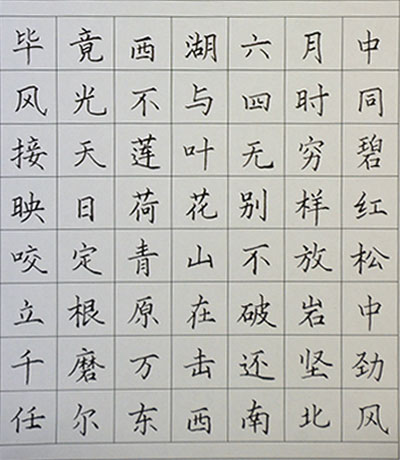 毕竟西湖六月中
风光不与四时同
接天莲叶无穷碧
映日荷花别样红
咬定青山不放松
立根原在破岩中
千磨万击还坚劲
任尔东西南北风